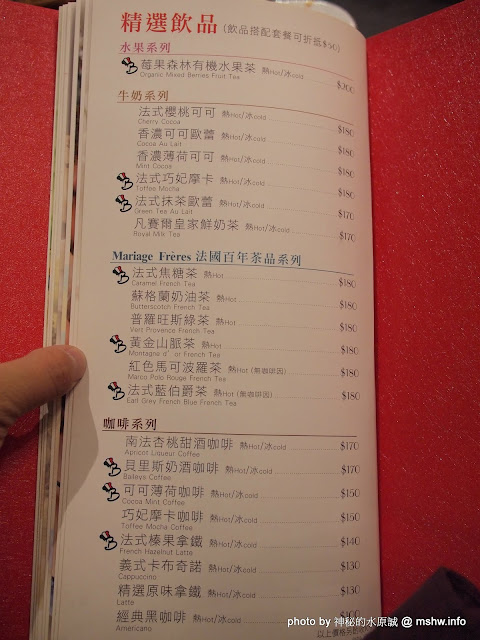 精選飲品 (飲品搭配套餐可折抵$50)
水果系列
莓果森林有機水果茶 熱Hot/冰cold $200
Organic Mixed Berries Fruit Tea
牛奶系列
法式櫻桃可可 熱Hot/冰cold $180
Cherry Cocoa
香濃可可歐蕾 熱Hot/冰cold $180
Cocoa Au Lait
香濃薄荷可可 熱Hot/冰cold $180
Mint Cocoa
法式巧妃摩卡 熱Hot/冰cold $180
Toffee Mocha
法式抹茶歐蕾 熱Hot/冰cold $170
Green Tea Au Lait
凡賽爾皇家鮮奶茶 熱Hot/冰cold $170
Royal Milk Tea
Mariage Frères 法國百年茶品系列
法式焦糖茶 熱Hot $180
Caramel French Tea
蘇格蘭奶油茶 熱Hot $180
Butterscotch French Tea
普羅旺斯綠茶 熱Hot $180
Vert Provence French Tea
黃金山脈茶 熱Hot $180
Montagne d'or French Tea
紅色馬可波羅茶 熱Hot (無咖啡因) $180
Marco Polo Rouge French Tea
法式藍伯爵茶 熱Hot (無咖啡因) $180
Earl Grey French Blue French Tea
咖啡系列
南法杏桃甜酒咖啡 熱Hot/冰cold $170
Apricot Liqueur Coffee
貝里斯奶酒咖啡 熱Hot/冰cold $170
Baileys Coffee
可可薄荷咖啡 熱Hot/冰cold $150
Cocoa Mint Coffee
巧妃摩卡咖啡 熱Hot/冰cold $150
Toffee Mocha Coffee
法式榛果拿鐵 熱Hot/冰cold $140
French Hazelnut Latte
義式卡布奇諾 熱Hot/冰cold $130
Cappuccino
精選原味拿鐵 熱Hot/冰cold $130
Latte
經典黑咖啡 熱Hot/冰cold $100
Americano
以上價格另
photo by 神秘的水原誠 @ mshw.info